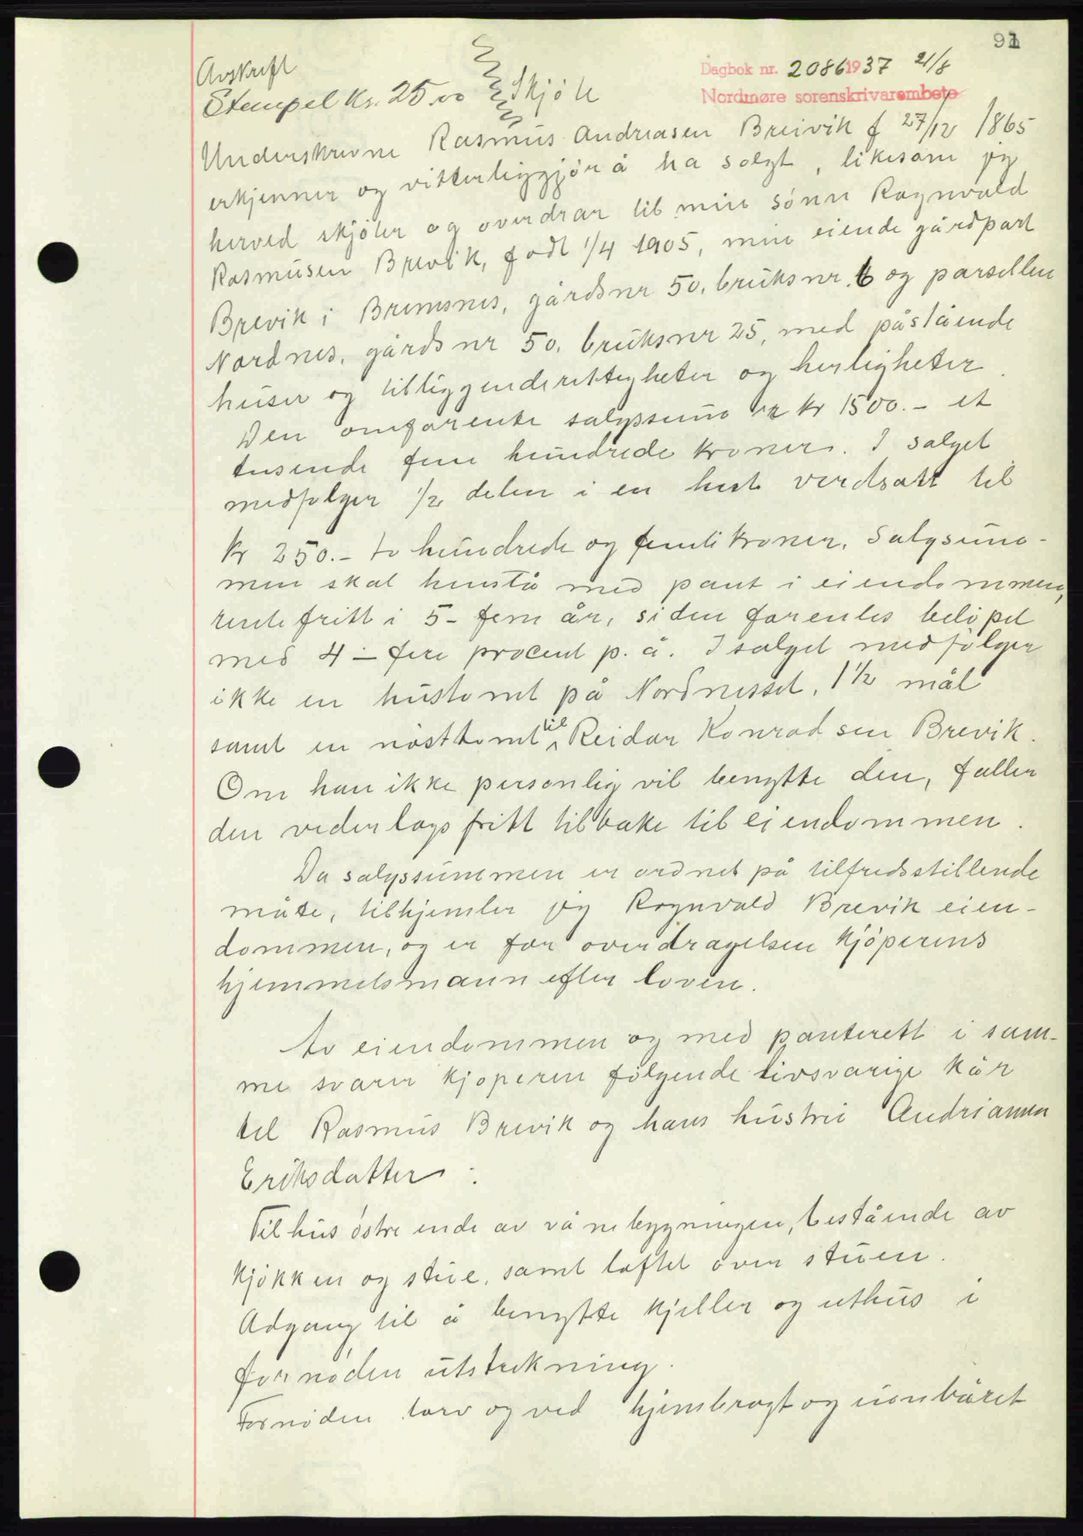 91
Avskrift
Dagbok nr. 2086 1937 21/8
Nordmøre sorenskrivarembete
Stempel Kr. 25.00 Skjöte
Underskrevne Rasmus Andreasen Breivik f 27/12 1865
erkjenner og vitterliggjör å ha solgt, likesom jeg
herved skjöter og overdrar til min sönn Ragnvald
Rasmusen Brevik, födt 1/4 1905, min eiende gårdpart
Brevik i Bremsnes, gårdsnr 50, bruksnr. 6 og parsellen
Nordnes, gårdsnr 50, bruksnr 25, med påstående
huser og tilliggende rettigheter og herligheter.
Den omforente salgssum er kr 1500.- et
tusende fem hundrede kroner. I salget
medfölger 1/2 delen i en hest verdsatt til
kr 250.- to hundrede og femti kroner. Salgsum-
men skal henstå med pant i eiendommen,
rentefritt i 5- fem år, siden forentes belöpet
med 4 - fire procent p. å. I salget medfölger
ikke en hustomt på Nordnesset, 1 1/2 mål
samt en nösttomt til Reidar Konradsen Brevik.
Om han ikke personlig vil benytte den, faller
den vederlagsfritt tilbake til eiendommen.
Da salgssummen er ordnet på tilfredsstillende
måte, tilhjemler jeg Ragnvald Brevik eien-
dommen, og er for overdragelsen kjöperens
hjemmelsmann efter loven.
Av eiendommen og med panterett i sam-
me svarer kjöperen fölgende livsvarige kår
til Rasmus Brevik og hans hustru Andrianna
Eriksdatter:
Til hus östre ende av vånebygningen, bestående av
kjökken og stue, samt loftet over stuen.
Adgang til å benytte kjeller og uthus i
fornöden utstrekning.
Fornöden torv og ved hjembragt og innbåret